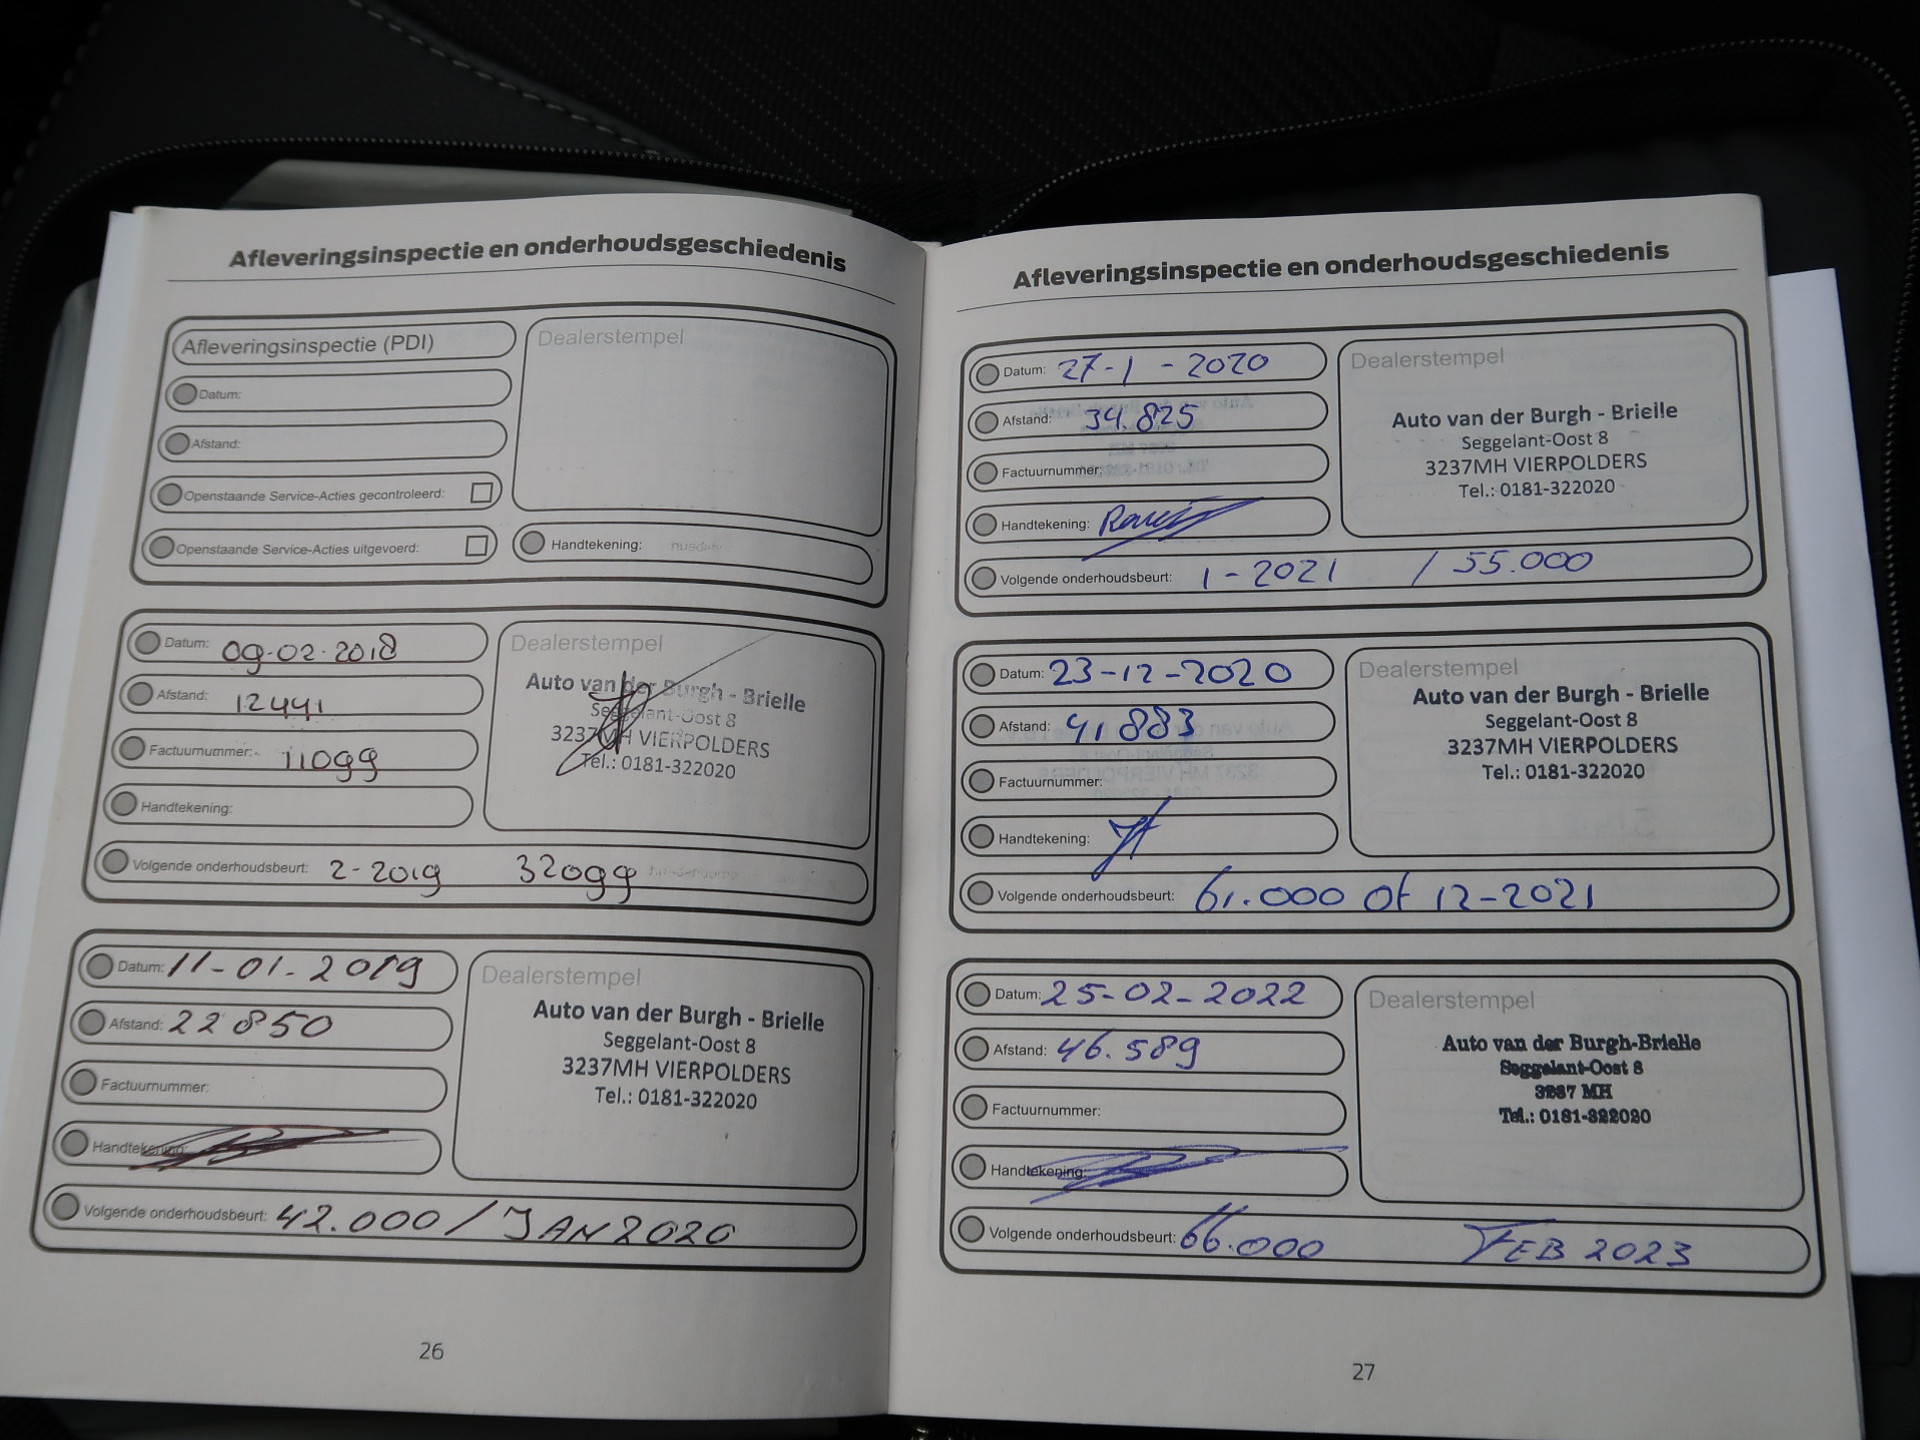 Afleveringsinspectie en onderhoudsgeschiedenis
Afleveringsinspectie (PDI)
Dealerstempel
Datum:
Afstand:
Openstaande Service-Acties gecontroleerd:
Openstaande Service-Acties uitgevoerd:
Handtekening:
Datum: 09-02-2018
Afstand: 12441
Factuurnummer: 11099
Handtekening:
Dealerstempel
Auto van der Burgh - Brielle
Seggelant-Oost 8
3237MH VIERPOLDERS
Tel.: 0181-322020
Volgende onderhoudsbeurt: 2-2019 32099
Datum: 11-01-2019
Afstand: 22850
Factuurnummer:
Handtekening:
Dealerstempel
Auto van der Burgh - Brielle
Seggelant-Oost 8
3237MH VIERPOLDERS
Tel.: 0181-322020
Volgende onderhoudsbeurt: 42.000 / JAN 2020
26
Afleveringsinspectie en onderhoudsgeschiedenis
Datum: 27-1-2020
Afstand: 34.825
Factuurnummer:
Handtekening:
Dealerstempel
Auto van der Burgh - Brielle
Seggelant-Oost 8
3237MH VIERPOLDERS
Tel.: 0181-322020
Volgende onderhoudsbeurt: 1-2021 / 55.000
Datum: 23-12-2020
Afstand: 41883
Factuurnummer:
Handtekening:
Dealerstempel
Auto van der Burgh - Brielle
Seggelant-Oost 8
3237MH VIERPOLDERS
Tel.: 0181-322020
Volgende onderhoudsbeurt: 61.000 of 12-2021
Datum: 25-02-2022
Afstand: 46.589
Factuurnummer:
Handtekening:
Dealerstempel
Auto van der Burgh-Brielle
Seggelant-Oost 8
3237 MH
Tel.: 0181-322020
Volgende onderhoudsbeurt: 66.000 FEB 2023
27